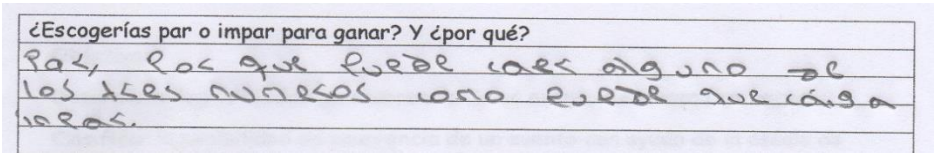 ¿Escogerías par o impar para ganar? Y ¿por qué?
Par, por que puede caer alguno de
los tres numeros como puede que cáiga
inpar.